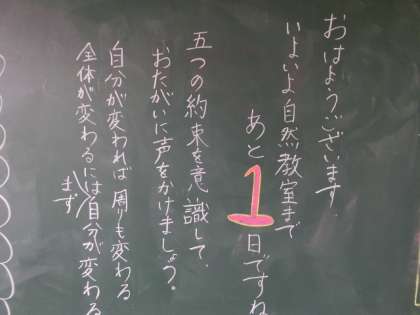 おはようございます。
いよいよ自然教室まで
あと1日ですね
五つの約束を意識して、
おたがいに声をかけましょう。
自分が変われば周りも変わる
全体が変わるにはまず自分が変わる